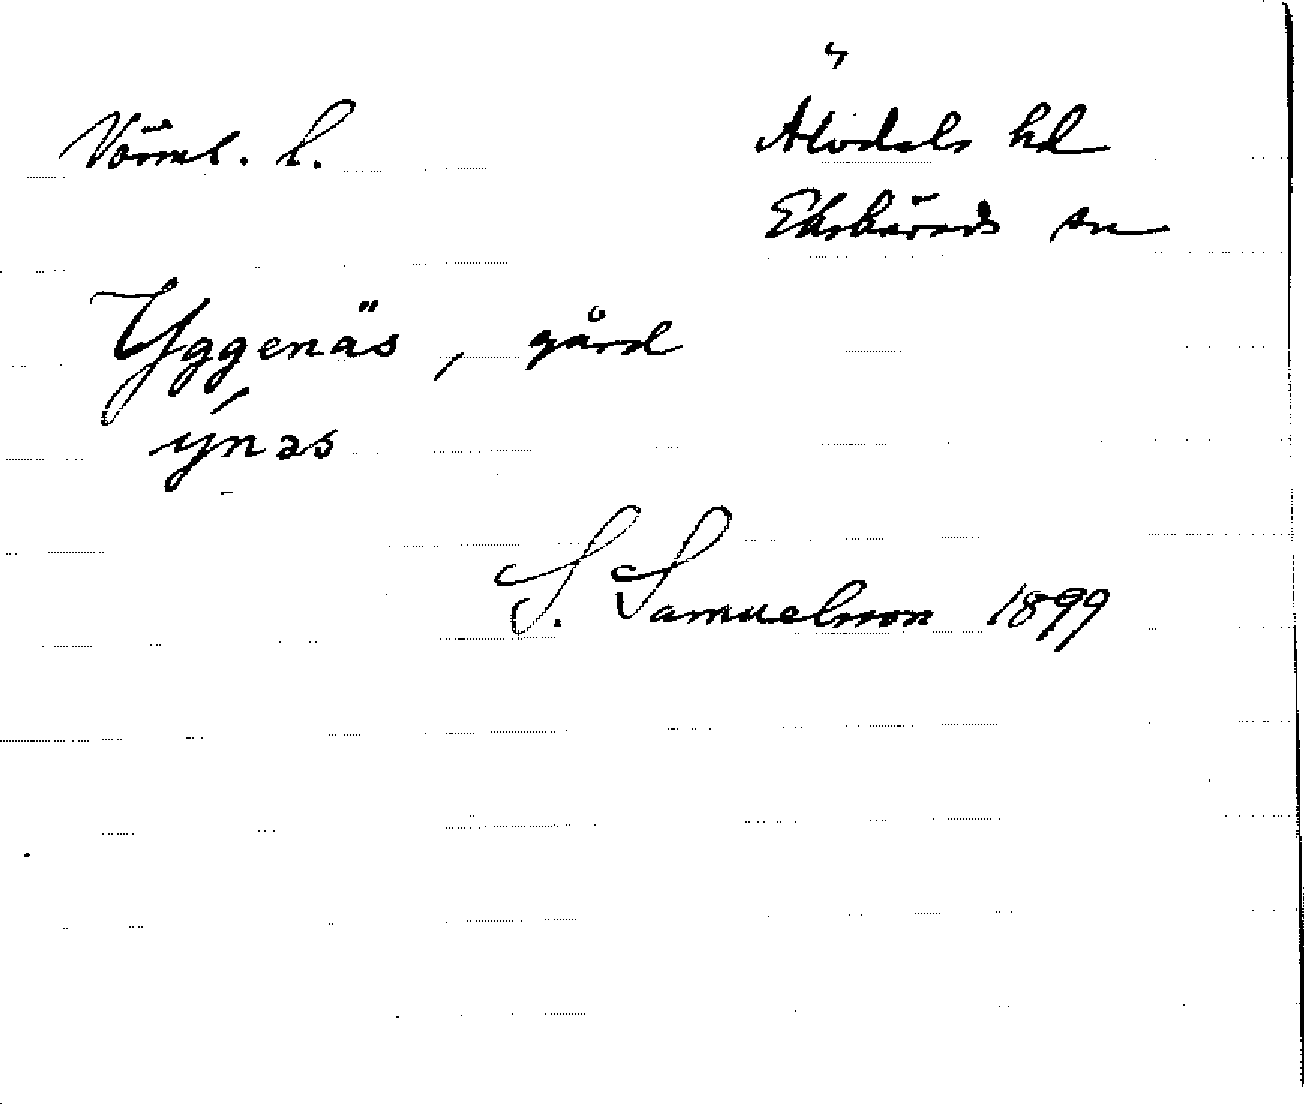 Värml. l.
Älvdals hd
Ekshärads sn
Yggenäs, gård
ýnäs
S. Samuelsson 1899